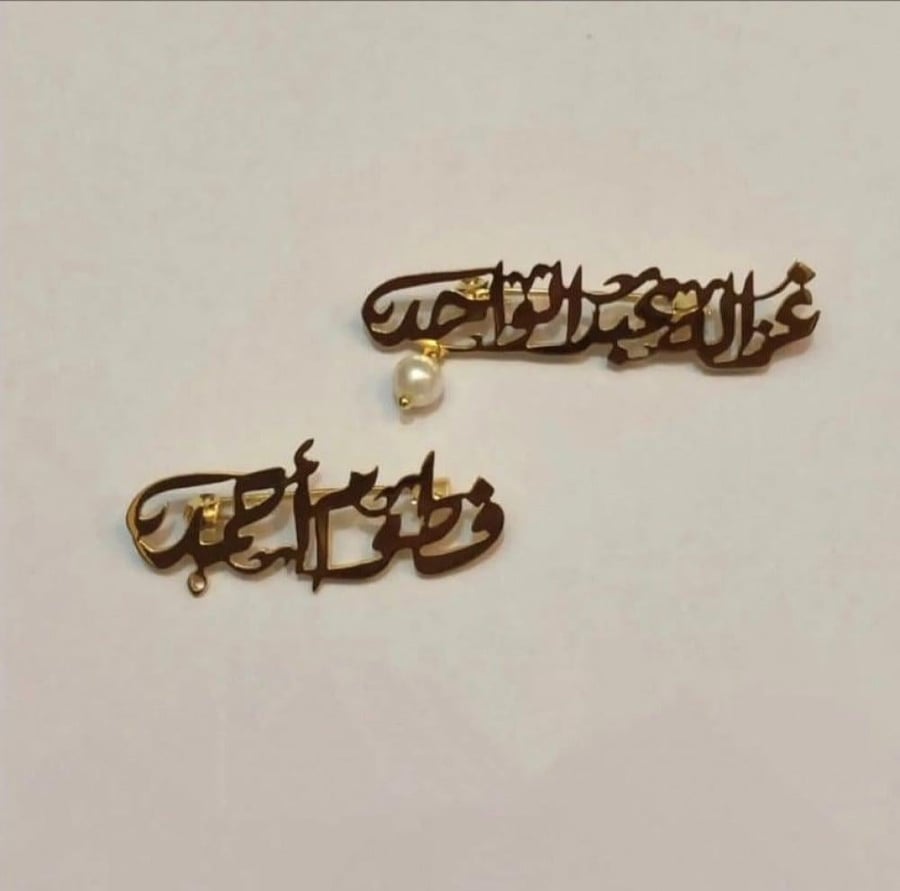 غزاله عبد الواحد
فطوم أحمد